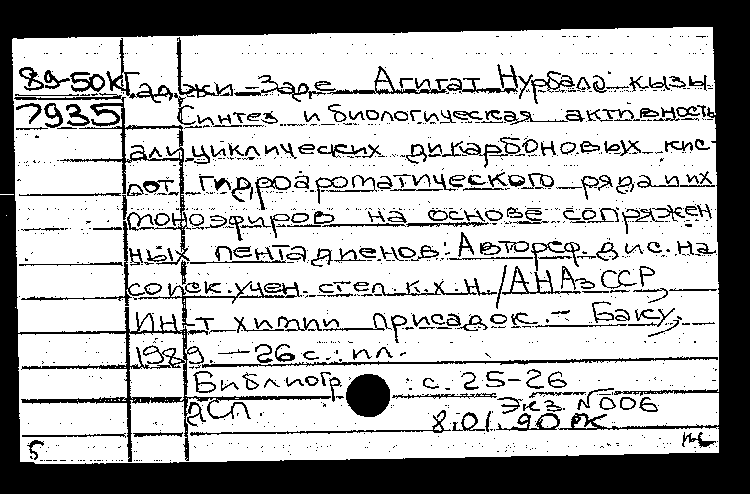 89-50к Гаджи-Заде Агигат Нурбала кызы
7935 Синтез и биологическая активность
алициклических дикарбоновых кис-
лот гидроароматического ряда и их
моноэфиров на основе сопряжен
ных пентадиенов: Автореф. дис. на
соиск. учен. степ. к.х.н. / АН АзССР,
Ин-т химии присадок. - Баку,
1989. - 26 с.: ил.
Библиогр.: с. 25-26
ДСП. Экз. N 006
8.01.90 РК
5